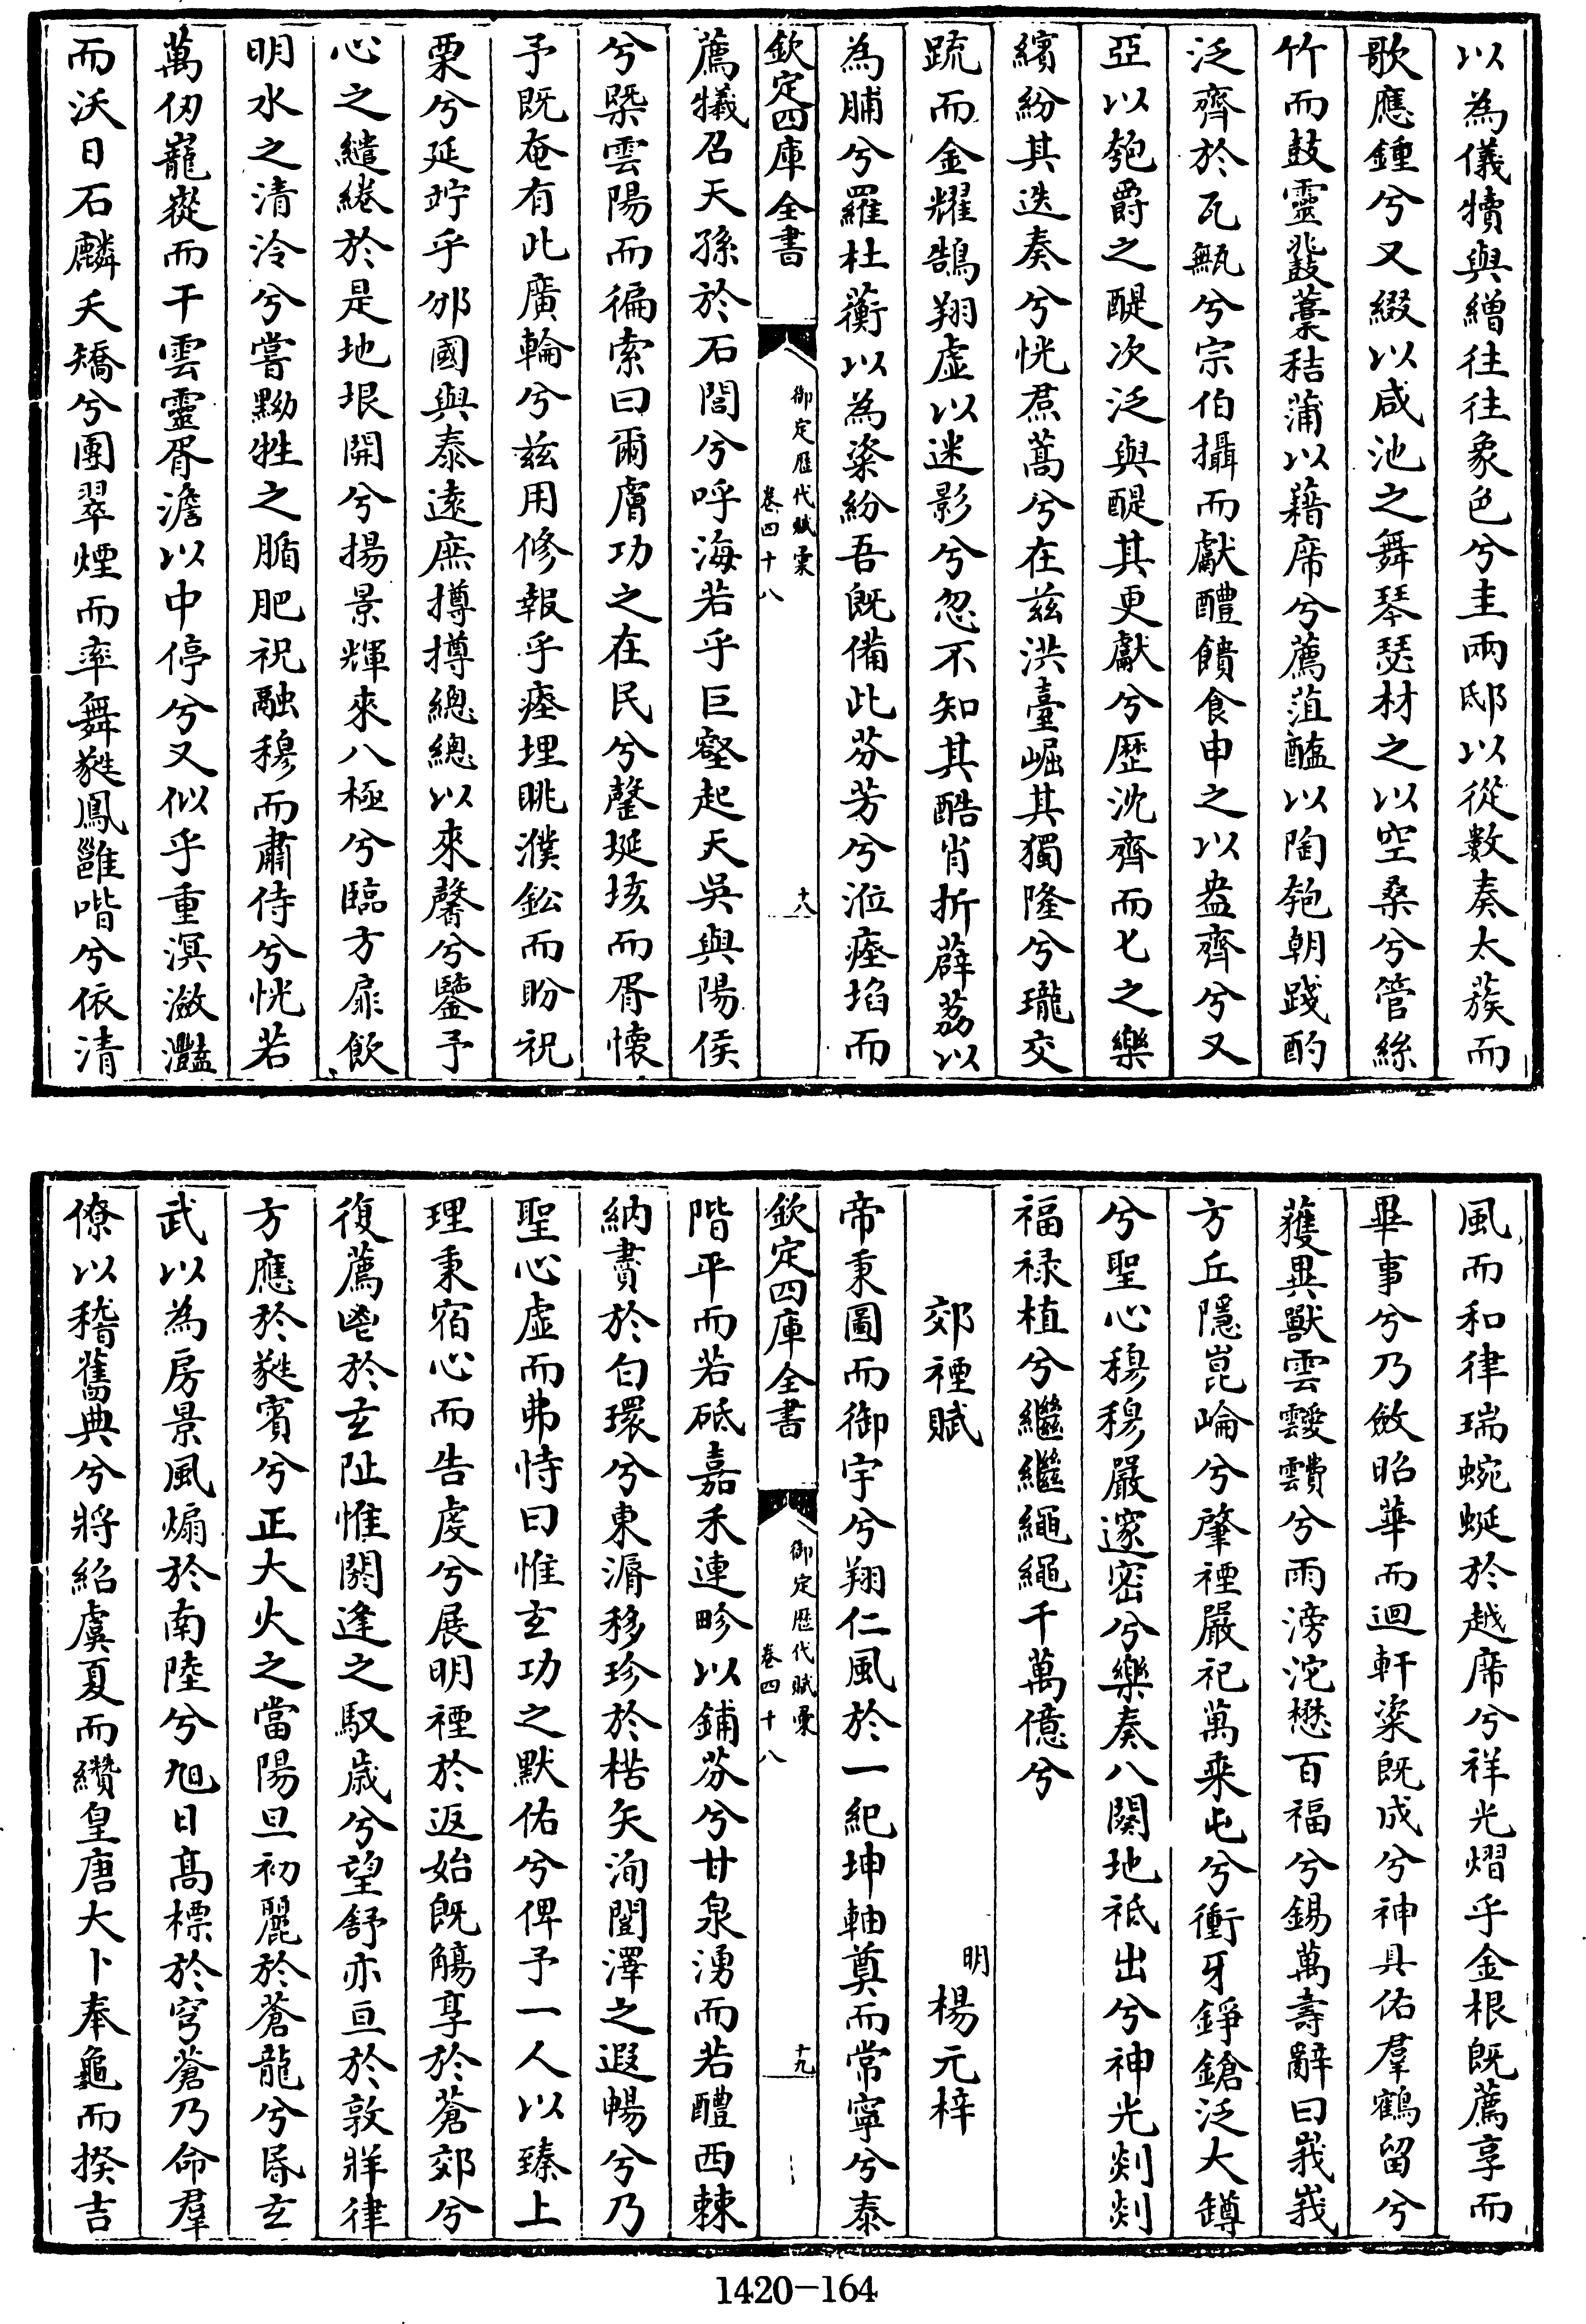 以為儀犢與繒往往象色兮圭兩邸以從數奏太蔟而
歌應鍾兮又綴以咸池之舞琴瑟材之以空桑兮管絲
竹而鼓靈鼗藁秸蒲以藉席兮薦菹醢以陶匏朝踐酌
泛齊於瓦甒兮宗伯攝而獻醴饋食申之以盎齊兮又
亞以匏爵之醍次泛與醍其更獻兮歷沈齊而七之樂
繽紛其迭奏兮恍焄蒿兮在兹洪臺崛其獨隆兮瓏交
疏而金耀鵠翔虚以迷影兮忽不知其酷肖折薜荔以
為脯兮羅杜蘅以為粢紛吾既備此芬芳兮涖瘞埳而
欽定四庫全書
御定歷代賦彙 卷四十八
十八
薦犧召天孫於石閭兮呼海若乎巨壑起天吳與陽侯
兮槩雲陽而徧索曰爾膚功之在民兮罄埏垓而胥懷
予既奄有此廣輪兮兹用修報乎瘞埋眺濮鈆而盼祝
栗兮延竚乎邠國與泰遠庶撙撙總總以來馨兮鑒予
心之繾綣於是地垠開兮揚景輝來八極兮臨方扉飲
明水之清泠兮嘗黝牲之腯肥祝融穆而肅侍兮恍若
萬仞巃嵸而干雲靈胥澹以中停兮又似乎重溟瀲灩
而沃日石麟夭矯兮團翠煙而率舞蕤鳳雝喈兮依清
風而和律瑞蜿蜒於越席兮祥光熠乎金根既薦享而
畢事兮乃斂昭華而迴軒粢既成兮神具佑羣鶴留兮
獲異獸雲靉靅兮雨滂沱懋百福兮錫萬壽辭曰峩峩
方丘隱崑崘兮肇禋嚴祀萬乘屯兮衝牙錚鎗泛大罇
兮聖心穆穆嚴邃密兮樂奏八闋地祇出兮神光剡剡
福禄植兮繼繼繩繩千萬億兮
郊禋賦 明 楊元梓
帝秉圖而御宇兮翔仁風於一紀坤軸奠而常寧兮泰
欽定四庫全書
御定歷代賦彙 卷四十八
十九
階平而若砥嘉禾連畛以鋪芬兮甘泉湧而若醴西棘
納賮於白環兮東漘移珍於楛矢洵闓澤之遐暢兮乃
聖心虚而弗恃曰惟玄功之默佑兮俾予一人以臻上
理秉宿心而告虔兮展明禋於返始既觴享於蒼郊兮
復薦鬯於玄阯惟閼逢之馭歲兮望舒亦亘於敦牂律
方應於蕤賓兮正大火之當陽旦初麗於蒼龍兮昏玄
武以為房景風煽於南陸兮旭日高標於穹蒼乃命羣
僚以稽舊典兮將紹虞夏而纘皇唐大卜奉龜而揆吉
1420-164